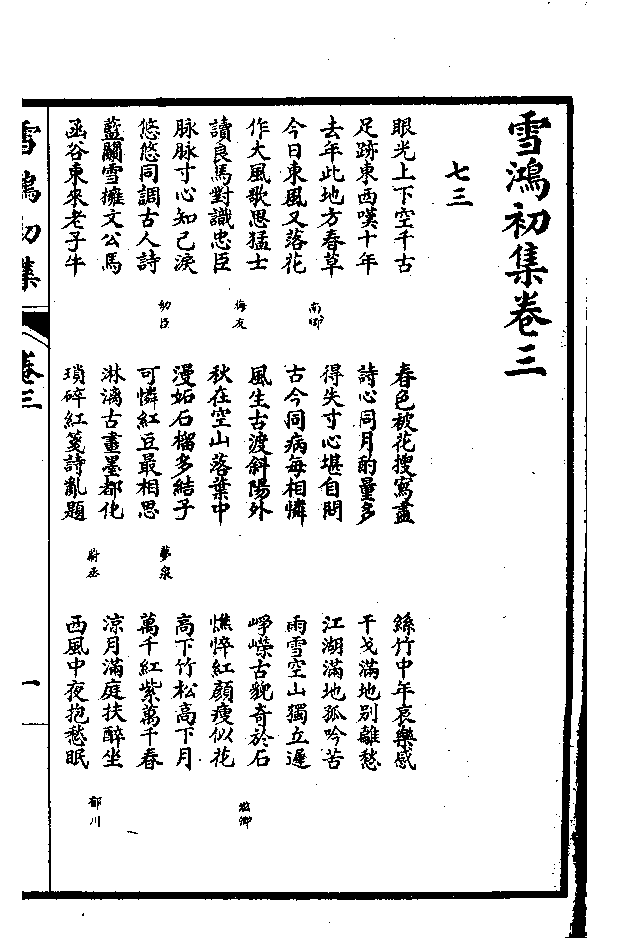 雪鴻初集卷三
七三
眼光上下空千古
足跡東西嘆十年
去年此地方春草
今日東風又落花
南卿
作大風歌思猛士
讀良馬對識忠臣
脉脉寸心知己淚
悠悠同調古人詩
幼臣
藍關雪擁文公馬
函谷東來老子牛
春色被花搜寫盡
詩心同月酌量多
得失寸心堪自問
古今同病每相憐
風生古渡斜陽外
秋在空山落葉中
漫妬石榴多結子
可憐紅豆最相思
夢泉
淋漓古畫墨都化
瑣碎紅箋詩亂題
蔚丞
絲竹中年哀樂感
干戈滿地別離愁
江湖滿地孤吟苦
雨雪空山獨立遲
崢嶸古貌奇於石
憔悴紅顏瘦似花
高下竹松高下月
萬千紅紫萬千春
涼月滿庭扶醉坐
西風中夜抱愁眠
雪鴻初集
卷三
一